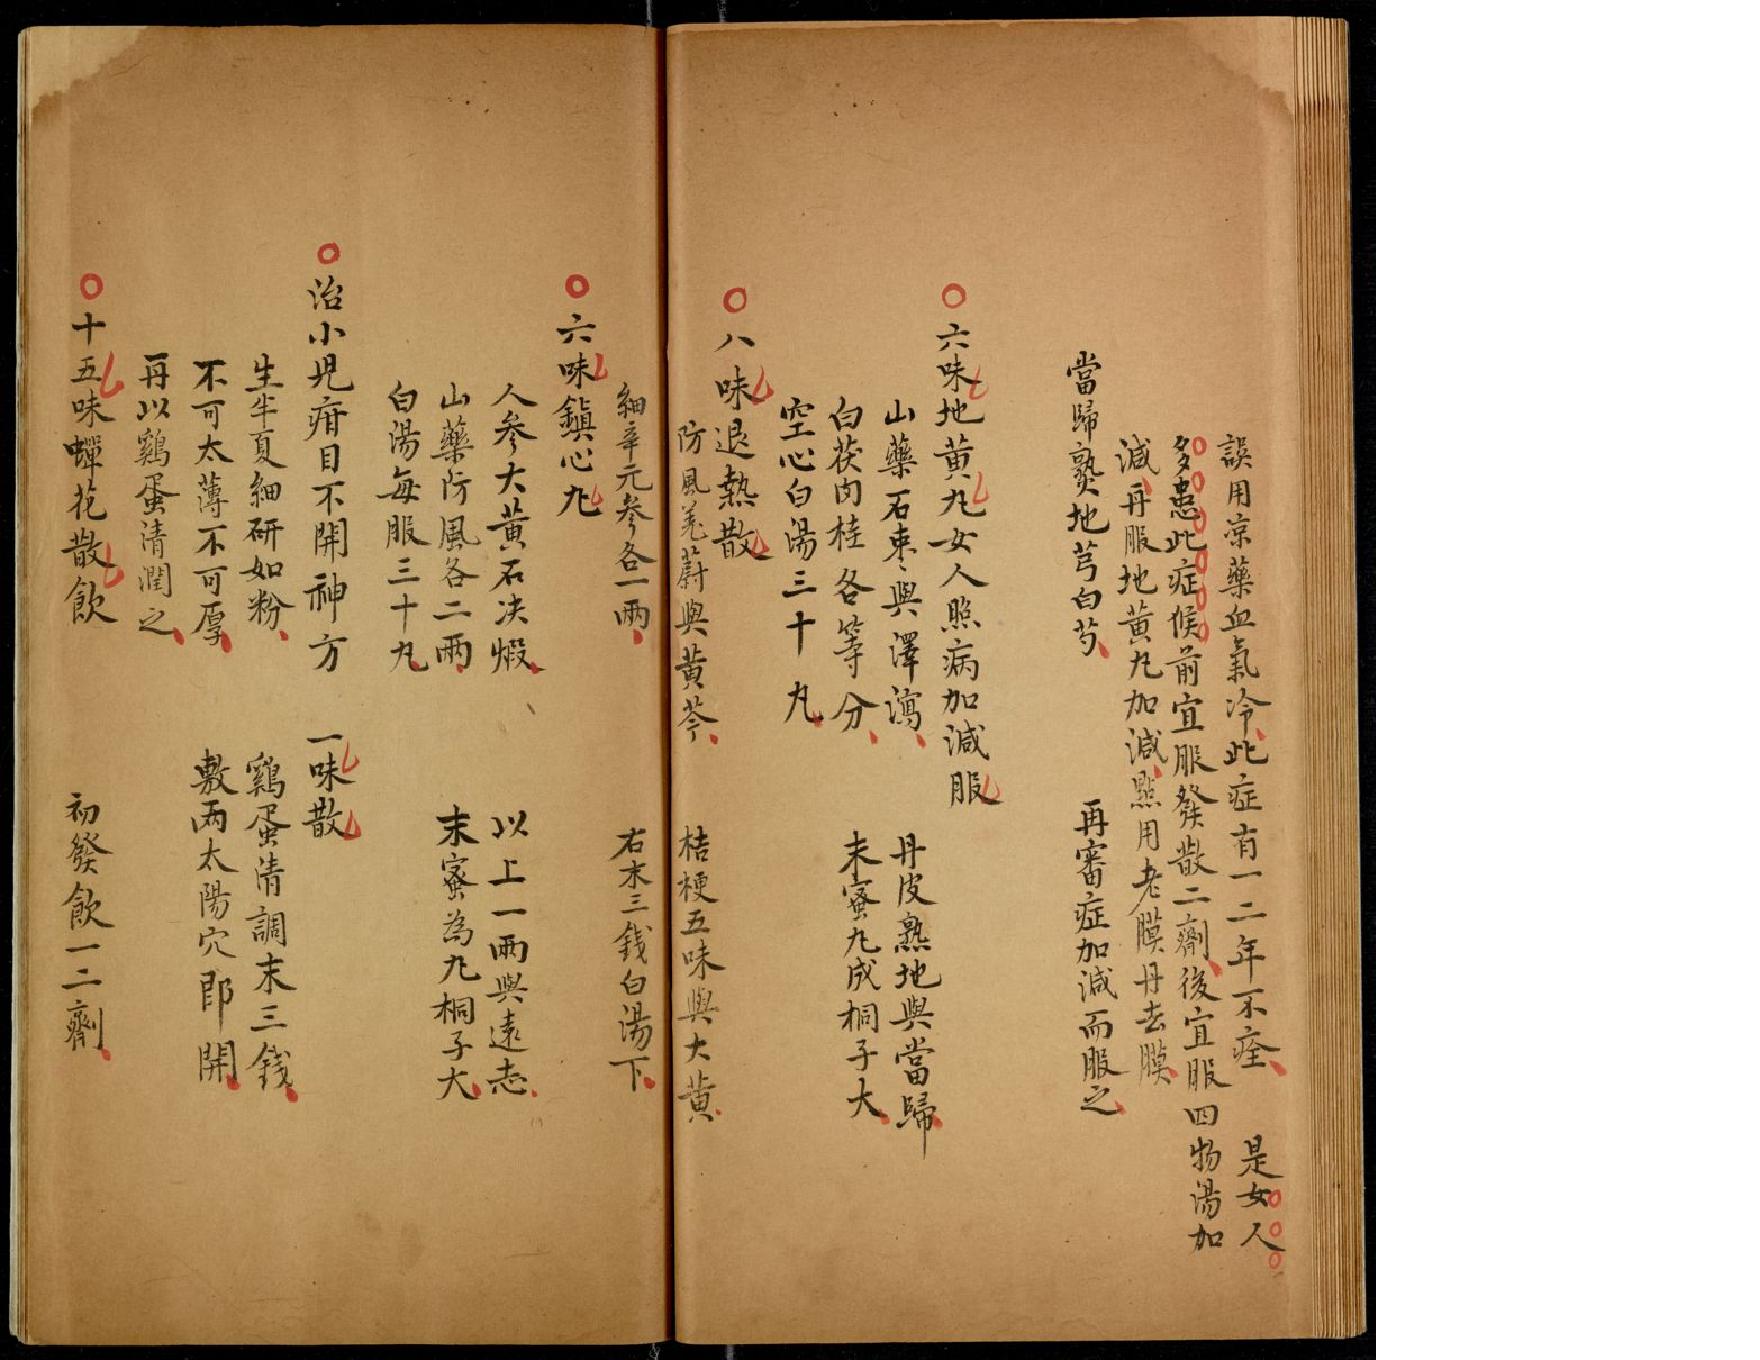 誤用涼藥血氣冷此症有一二年不痊 是女人
多患此症候前宜服發散二劑後宜服四物湯加
減再服地黃丸加減點用老膜丹去膜
當歸熟地芎白芍 再審症加減而服之
六味地黃丸女人照病加減服
山藥石棗與澤瀉 丹皮熟地與當歸
白茯肉桂各等分 末蜜丸成桐子大
空心白湯三十丸
八味退熱散
防風羌蔚與黃芩 桔梗五味與大黃
細辛元參各一兩 右末三錢白湯下
六味鎮心丸
人參大黃石决煅 以上一兩與遠志
山藥防風各二兩 末蜜為丸桐子大
白湯每服三十丸
治小児疳目不開神方 一味散
生半夏細研如粉 鷄蛋清調末三錢
不可太薄不可厚 敷兩太陽穴即開
再以鷄蛋清潤之
十五味蟬花散飲 初發飲一二劑